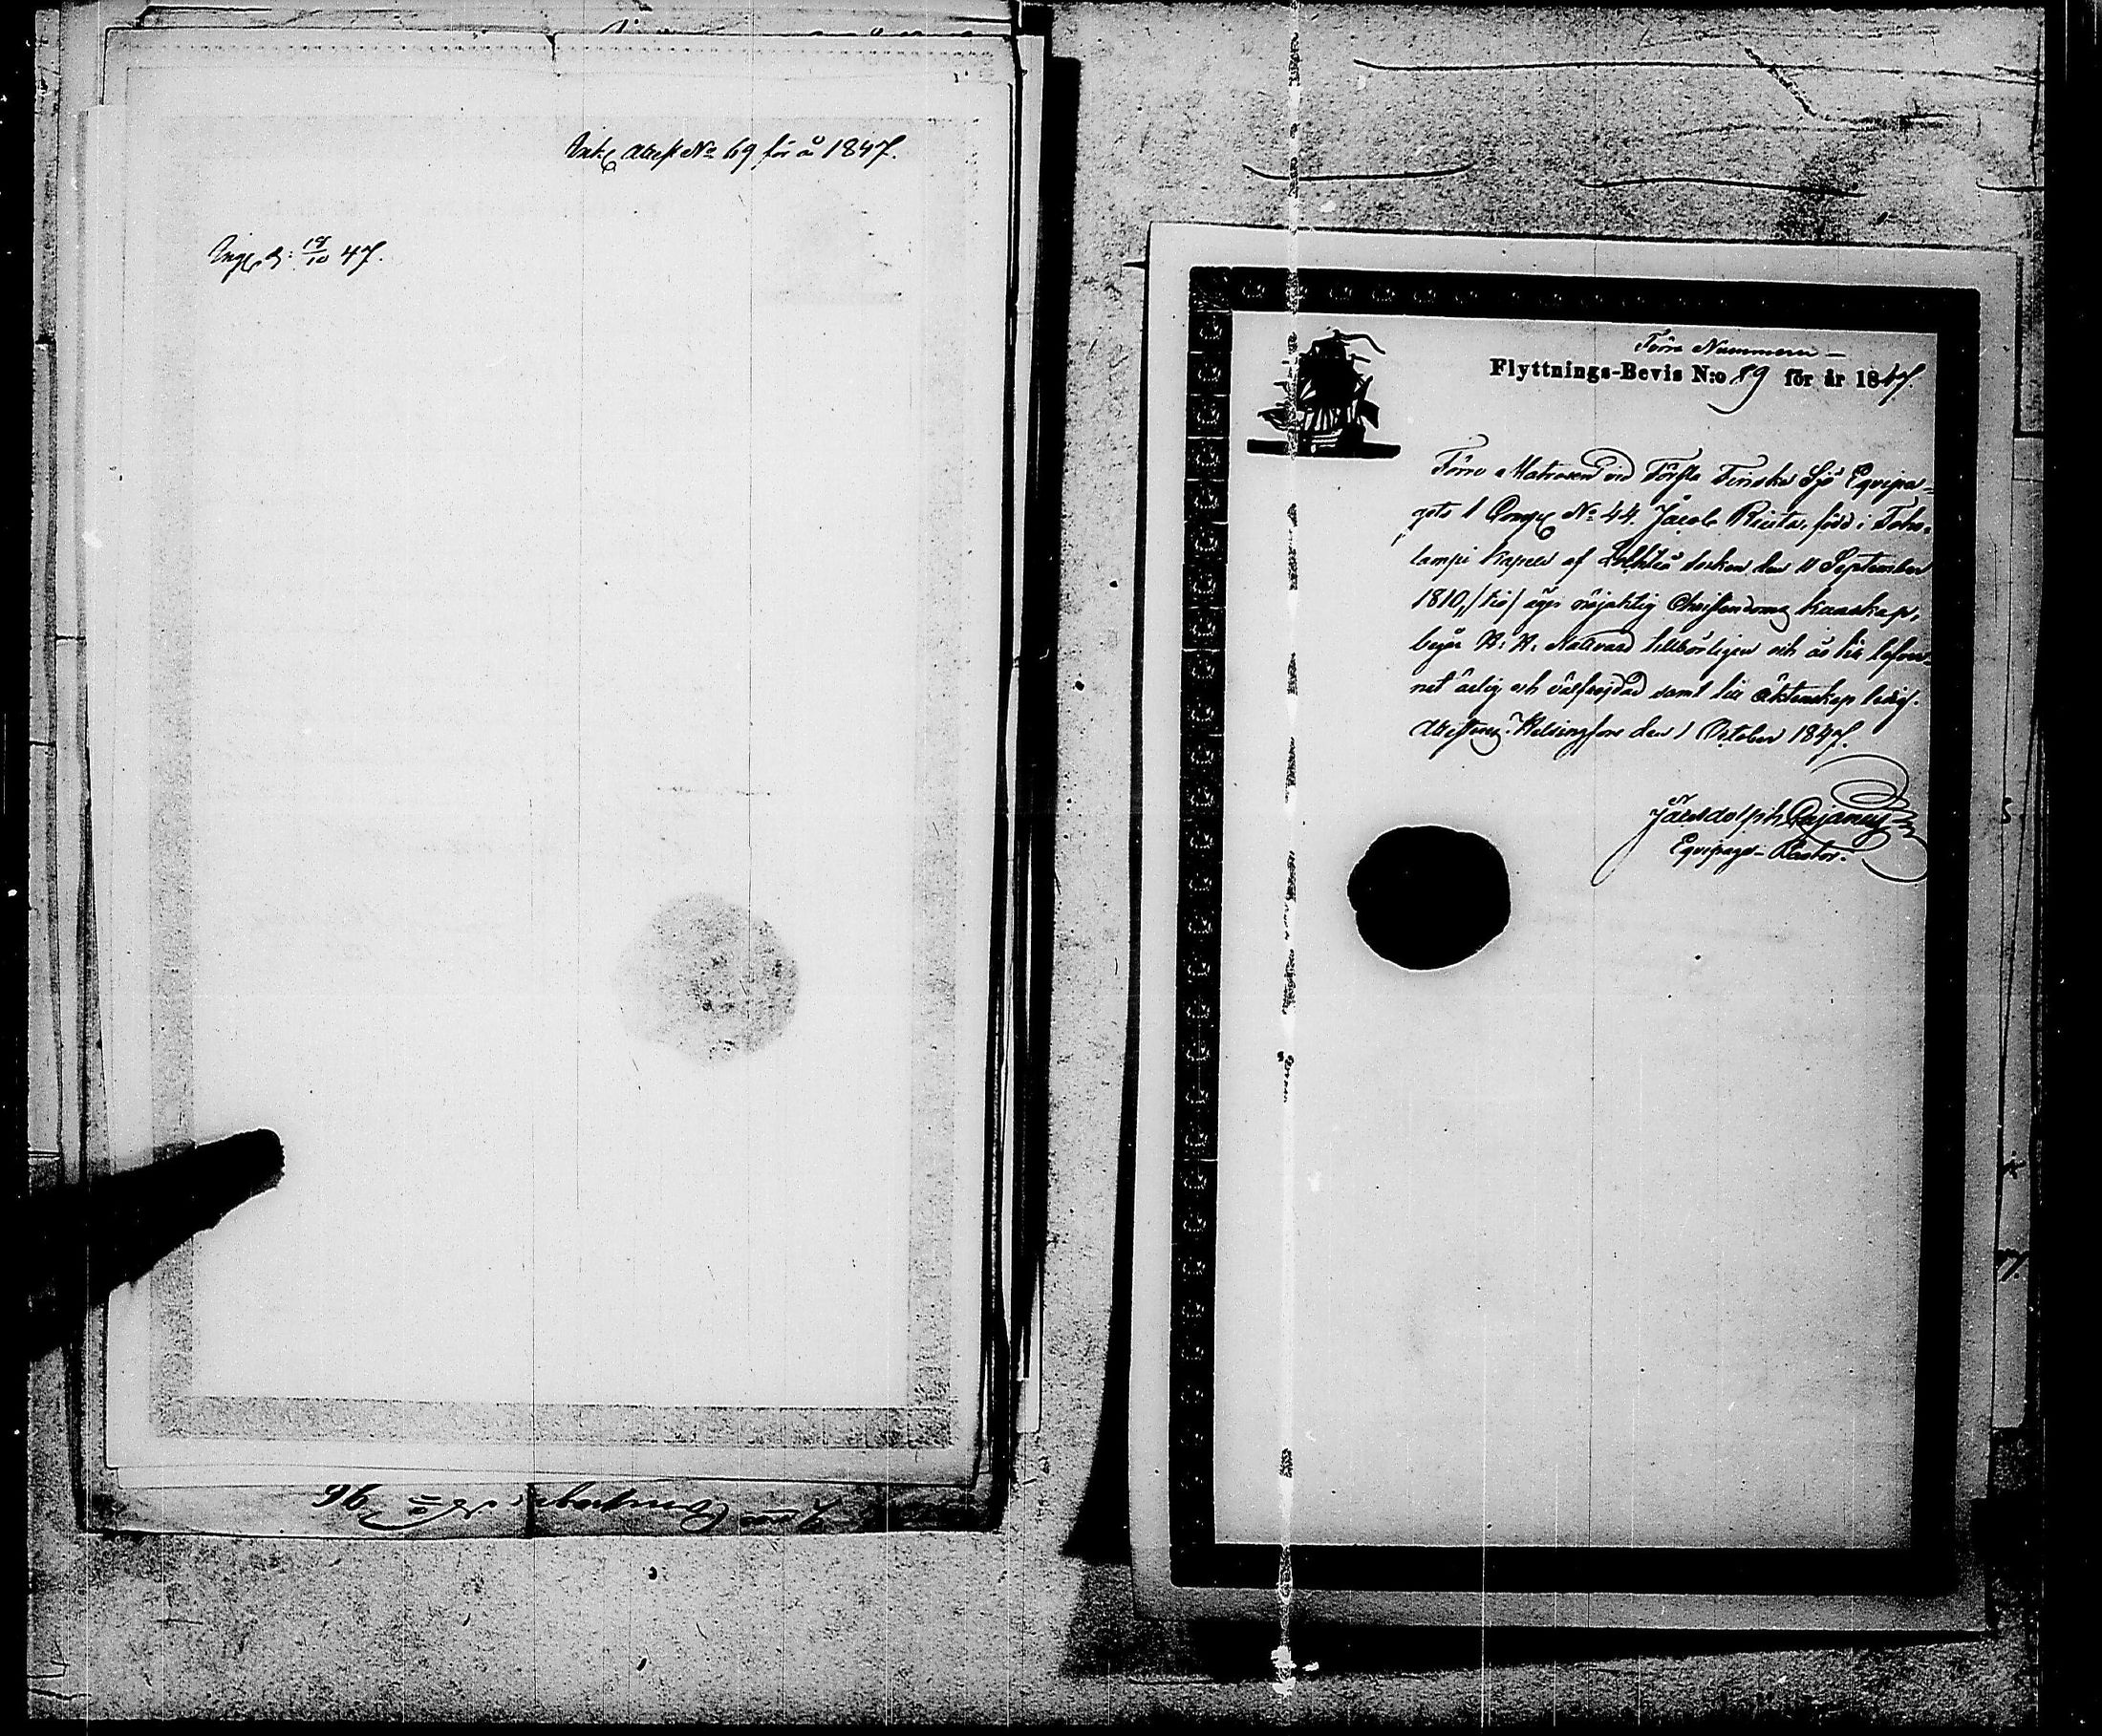 Ink. Attest No 69 för å 1847.
Ing. d: 18/10 47.
No 96
Förra Nummern –
Flyttnings-Bevis N:o 89 för år 1847.
Förre Matrosen vid Första Finska Sjö Equipa-
gets 1 Comp. No 44. Jacob Riuta, född i Toho-
lampi Kapell af Lochteå socken den 11 September
1810, /tio/ äger nöjaktig Christendoms kunskap,
begår H. H. Nattvard tillbörligen och är till lefver-
net ärlig och välfrejdad samt till äktenskap ledig.
Attesteras. Helsingfors den 1 October 1847.
Equipage-Pastor.